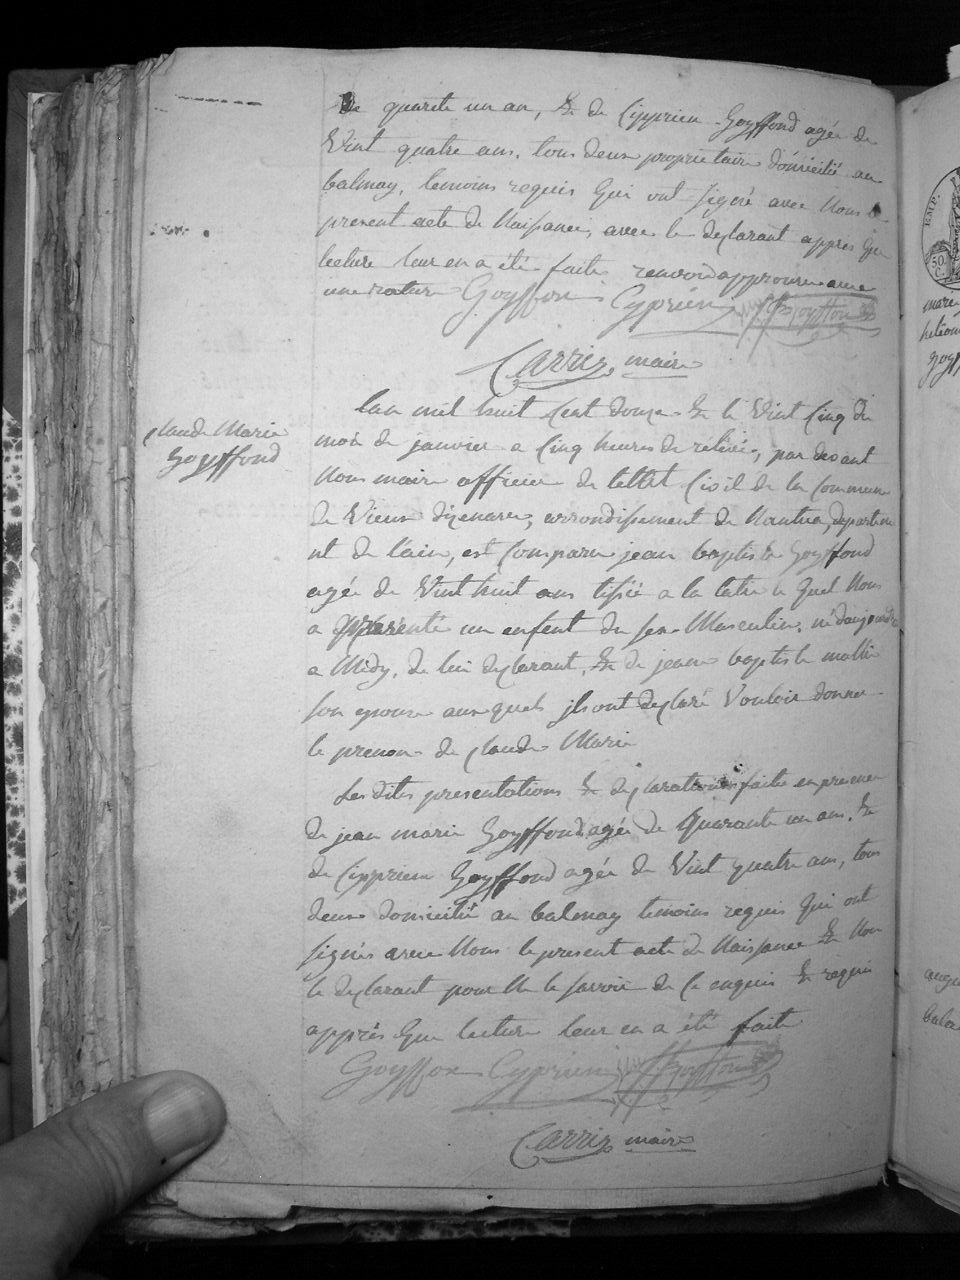 De quarete un an, & de Cipprien Goyffond agée de
Vint quatre ans, tous deux propriétaire domicilié au
balmay, temoins requis Qui ont signé avec Nous le
present acte de Naisance, avec le declarant appres Que
lecture leur en a été faite renvoid approuvé avec
une rature Goyffon Cyprien Goyffon
Carriz maire
claude Marie
Goyffond
lan mil huit Cent douze & le Vint Cinq du
mois de janvier a Cinq heures de relivée, par devant
Nous maire officier de lettat Civil de la Commune
de Vieux dizenave, arrondisement de Nantua, departeme
nt de l'ain, est Comparu jean baptiste Goyffond
agée de Vint huit ans le Quel Nous
a Présenté un enfent du sex Masculin, né daujourdui
a Midy, de lui declarant, & de jeanne baptiste
son epouse auxquels jls ont declaré Vouloir donner
le prenom de Claude Marie
Les dites presentations & declarations faite en presence
de jean marie Goyffond agée de Quarante un ans, &
de Cipprien Goyffond agée de Vint quatre ans, tous
deux domicilié au balmay temoins requis Qui ont
signés avec Nous le present acte de Naisance & Non
le declarant pour Ne le savoir de Ce enquis & requis
apprés Que lecture leur en a été faite
Goyffon Cyprien Goyffon
Carriz maire
EMP.
50
C.